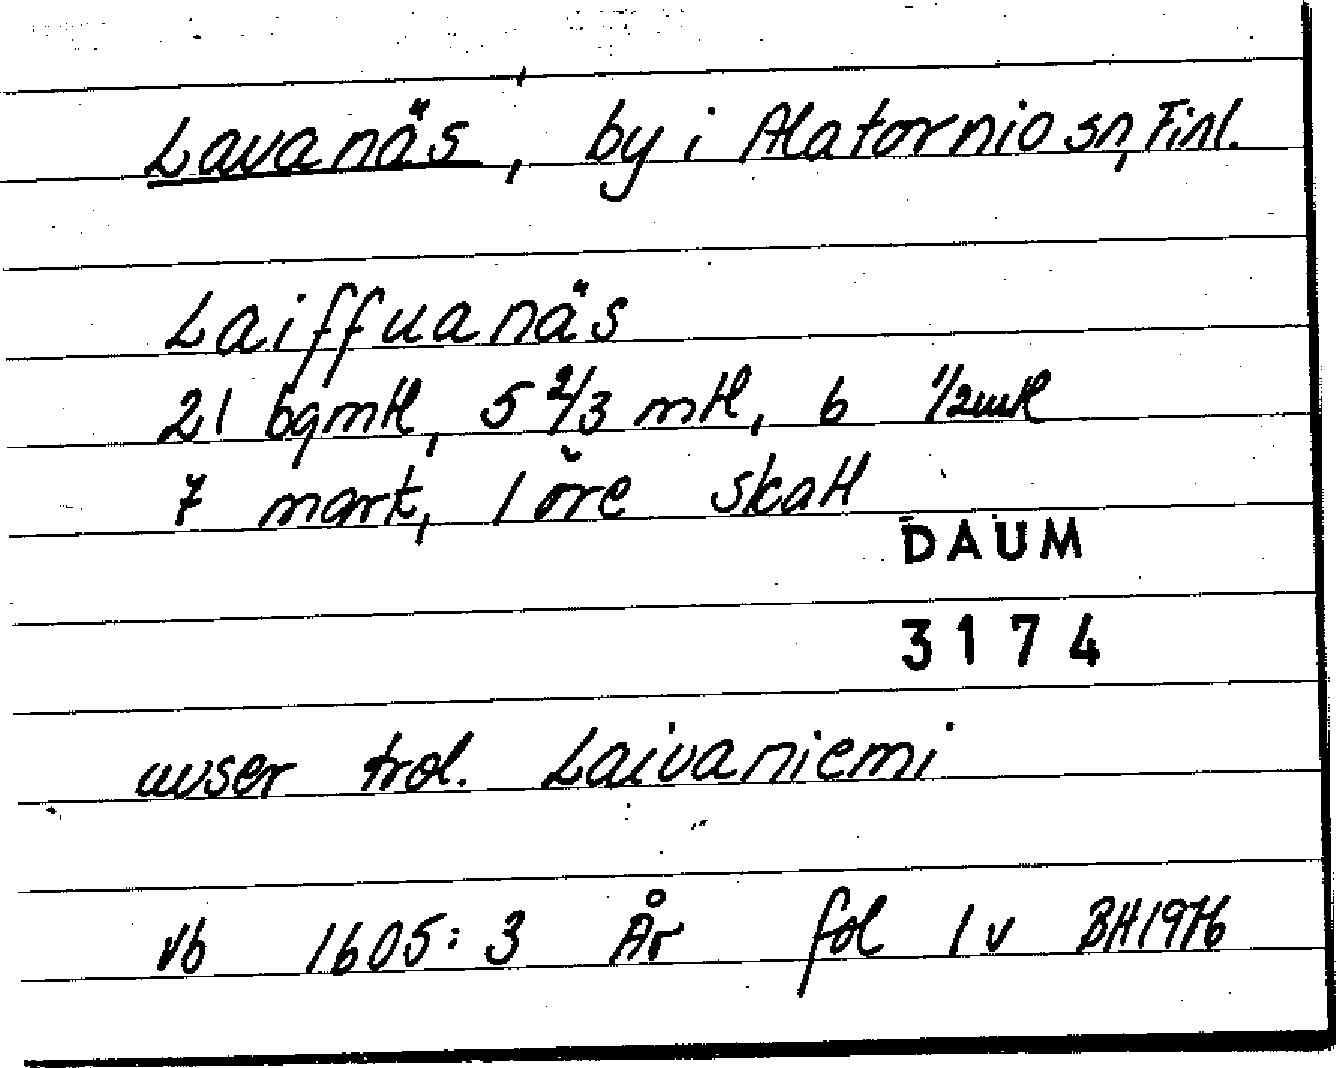 Lavanäs, by i Alatornio sn, Finl.
Laiffuanäs
21 bgmtl, 5 2/3 mtl, 6 1/2 mtl
7 mark, 1 öre skatt
DAUM
3174
avser trol. Laivaniemi
Vb 1605:3 År fol 1v BH1976